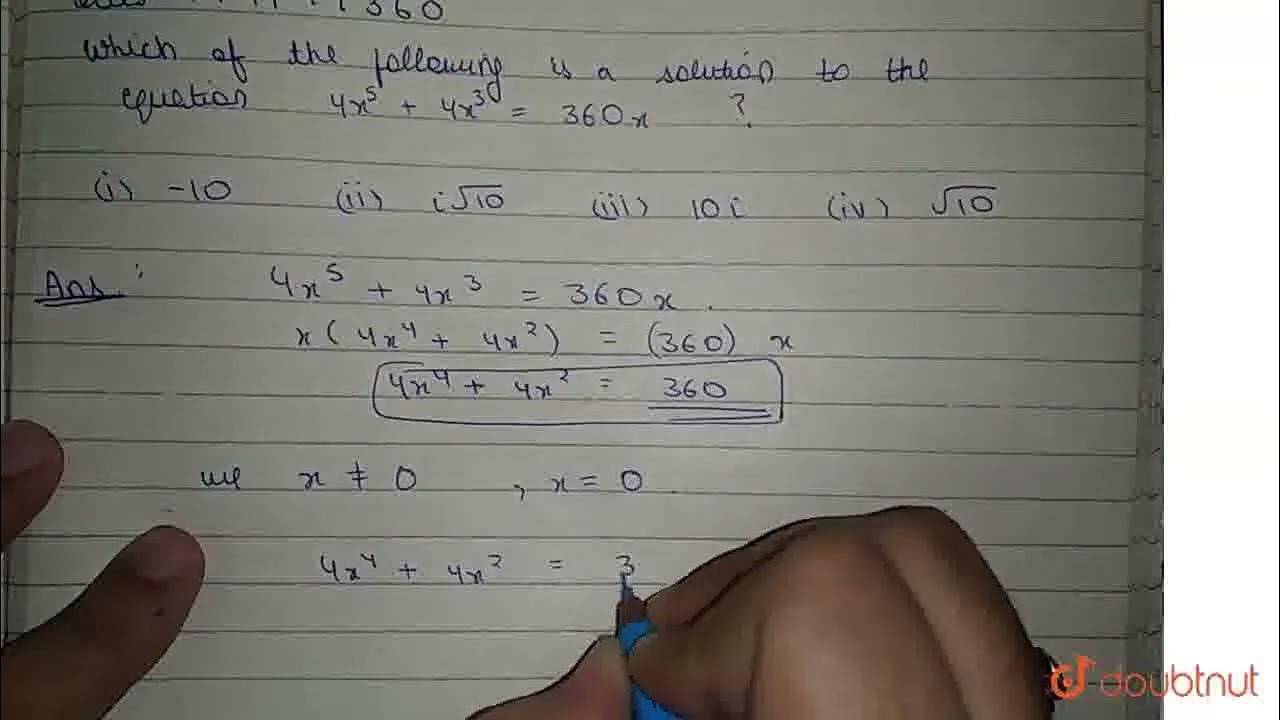 360
which of the following is a solution to the
equation 4x⁵ + 4x³ = 360x ?
(i) -10 (ii) i√10 (iii) 10i (iv) √10
Ans : 4x⁵ + 4x³ = 360x .
x(4x⁴ + 4x²) = (360) x
4x⁴ + 4x² = 360
x ≠ 0 , x = 0
4x⁴ + 4x² = 3
doubtnut